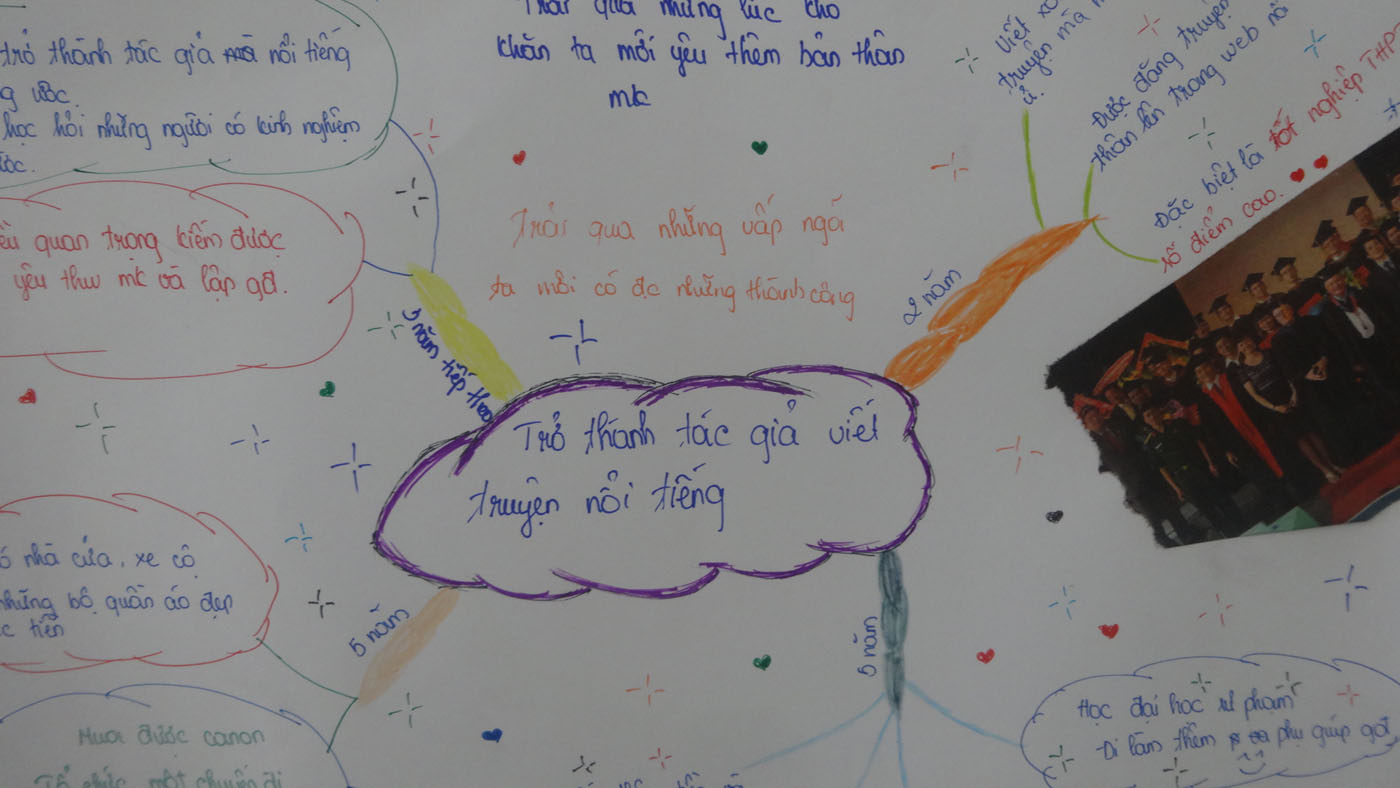 Trải qua những lúc khó
khăn ta mới yêu thêm bản thân
mk
trở thành tác giả mà nổi tiếng
ước.
học hỏi những người có kinh nghiệm
quan trọng kiếm được
yêu thw mk và lập gđ.
Trải qua những vấp ngã
ta mới có đc những thành công
Viết
truyện mà
Được đăng truyện
thân lên trang web nổi
Đặc biệt là tốt nghiệp THPT
số điểm cao.
2 năm
năm tiếp theo
Trở thành tác giả viết
truyện nổi tiếng
nhà cửa, xe cộ
những bộ quần áo đẹp
tiền
5 năm
5 năm
Mua được canon
Tổ chức một chuyến đi
Học đại học sư phạm
Đi làm thêm phụ giúp gđ